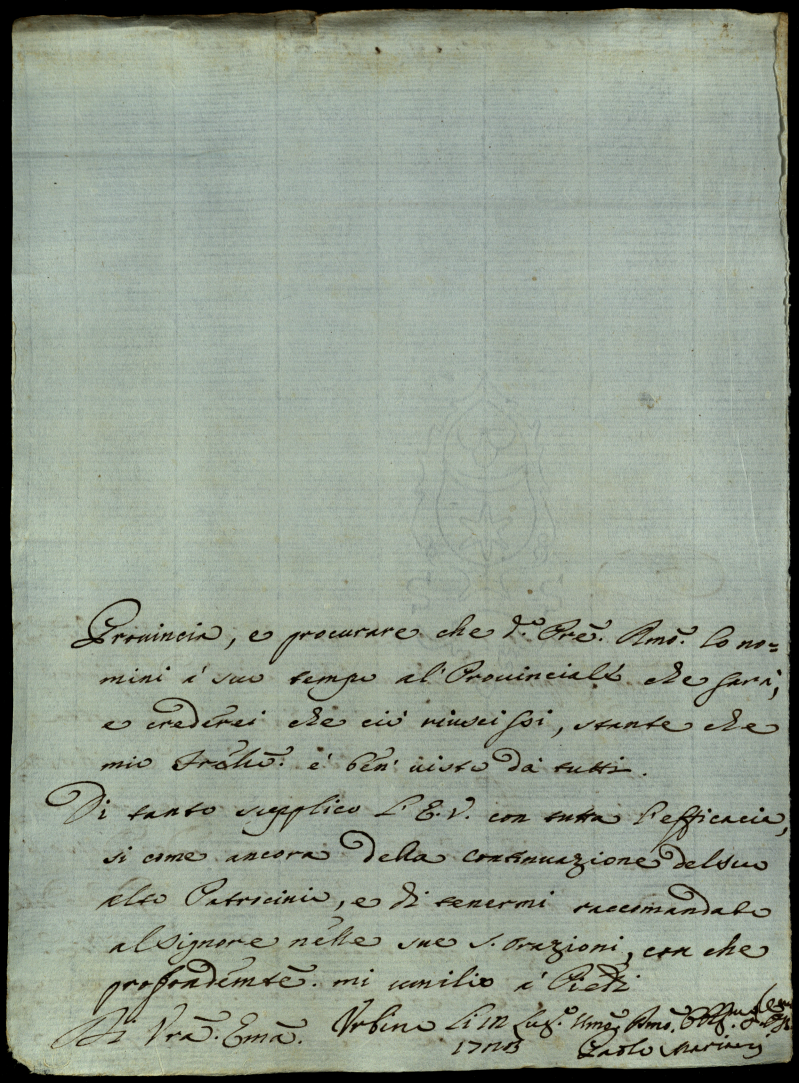 Prouincia, e procurare che d.º Prẽ. Rmo. lo no=
mini à suo tempo al Prouinciale che sarà,
e crederei che ciò riuscissi, stante che
mio è ben uisto da tutti.
Di tanto supplico L'E.V. con tutta l'efficacia,
si come ancora della continuazione del suo
alto Patrocinio, e di tenermi raccomandato
al Signore nelle sue s. orazioni, con che
profondamtẽ. mi umilio à Piedi
Di Vrã. Emã. Urbino Li Lug.º Umõ.
Paolo